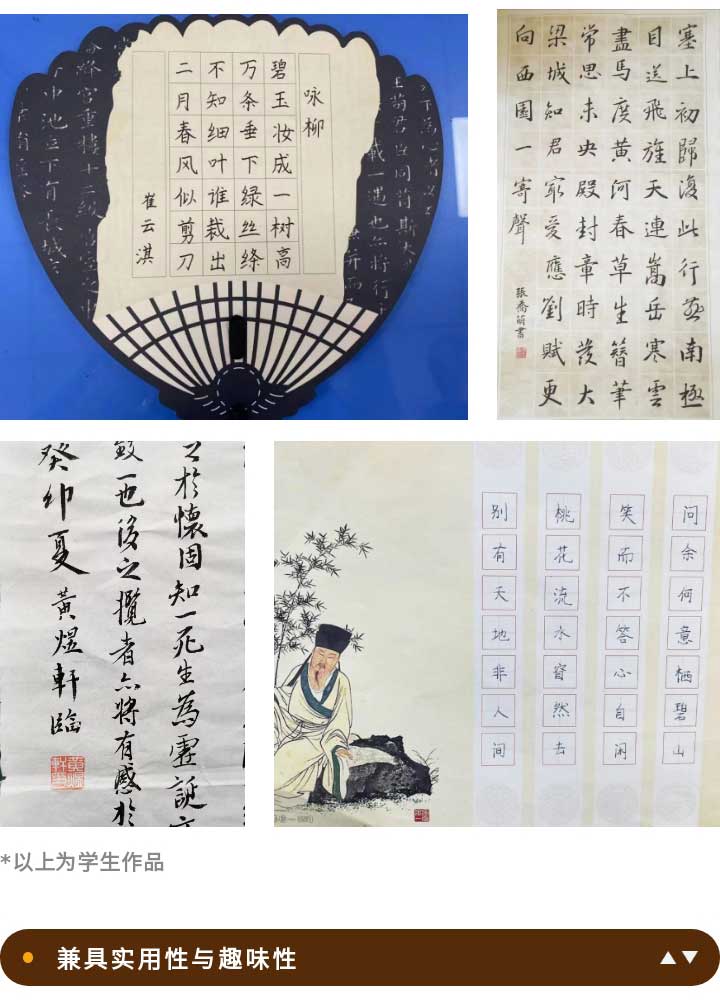 咏柳
碧玉妆成一树高
万条垂下绿丝绦
不知细叶谁裁出
二月春风似剪刀
崔云淇
塞上初歸復此行燕南極
目送飛旌天連嵩岳寒雲
盡馬度黄河春草生簪筆
常思未央殿封章時發大
梁城知君最愛應劉賦更
向西園一寄聲
之於懷固知一死生為虛誕
致一也後之攬者亦將有感於
癸卯夏黃煜軒臨
问余何意栖碧山
笑而不答心自闲
桃花流水窅然去
别有天地非人间
*以上为学生作品
兼具实用性与趣味性